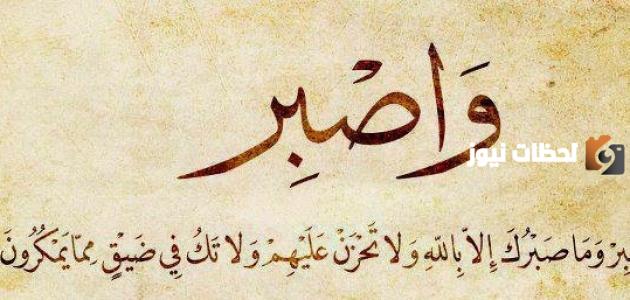 وَاصْبِر
لحظات نيوز
بِرْ وَمَا صَبْرُكَ إِلاَّ بِاللهِ وَلاَ تَحْزَنْ عَلَيْهِمْ وَلاَ تَكُ فِي ضَيْقٍ مِمَّا يَمْكُرُونَ